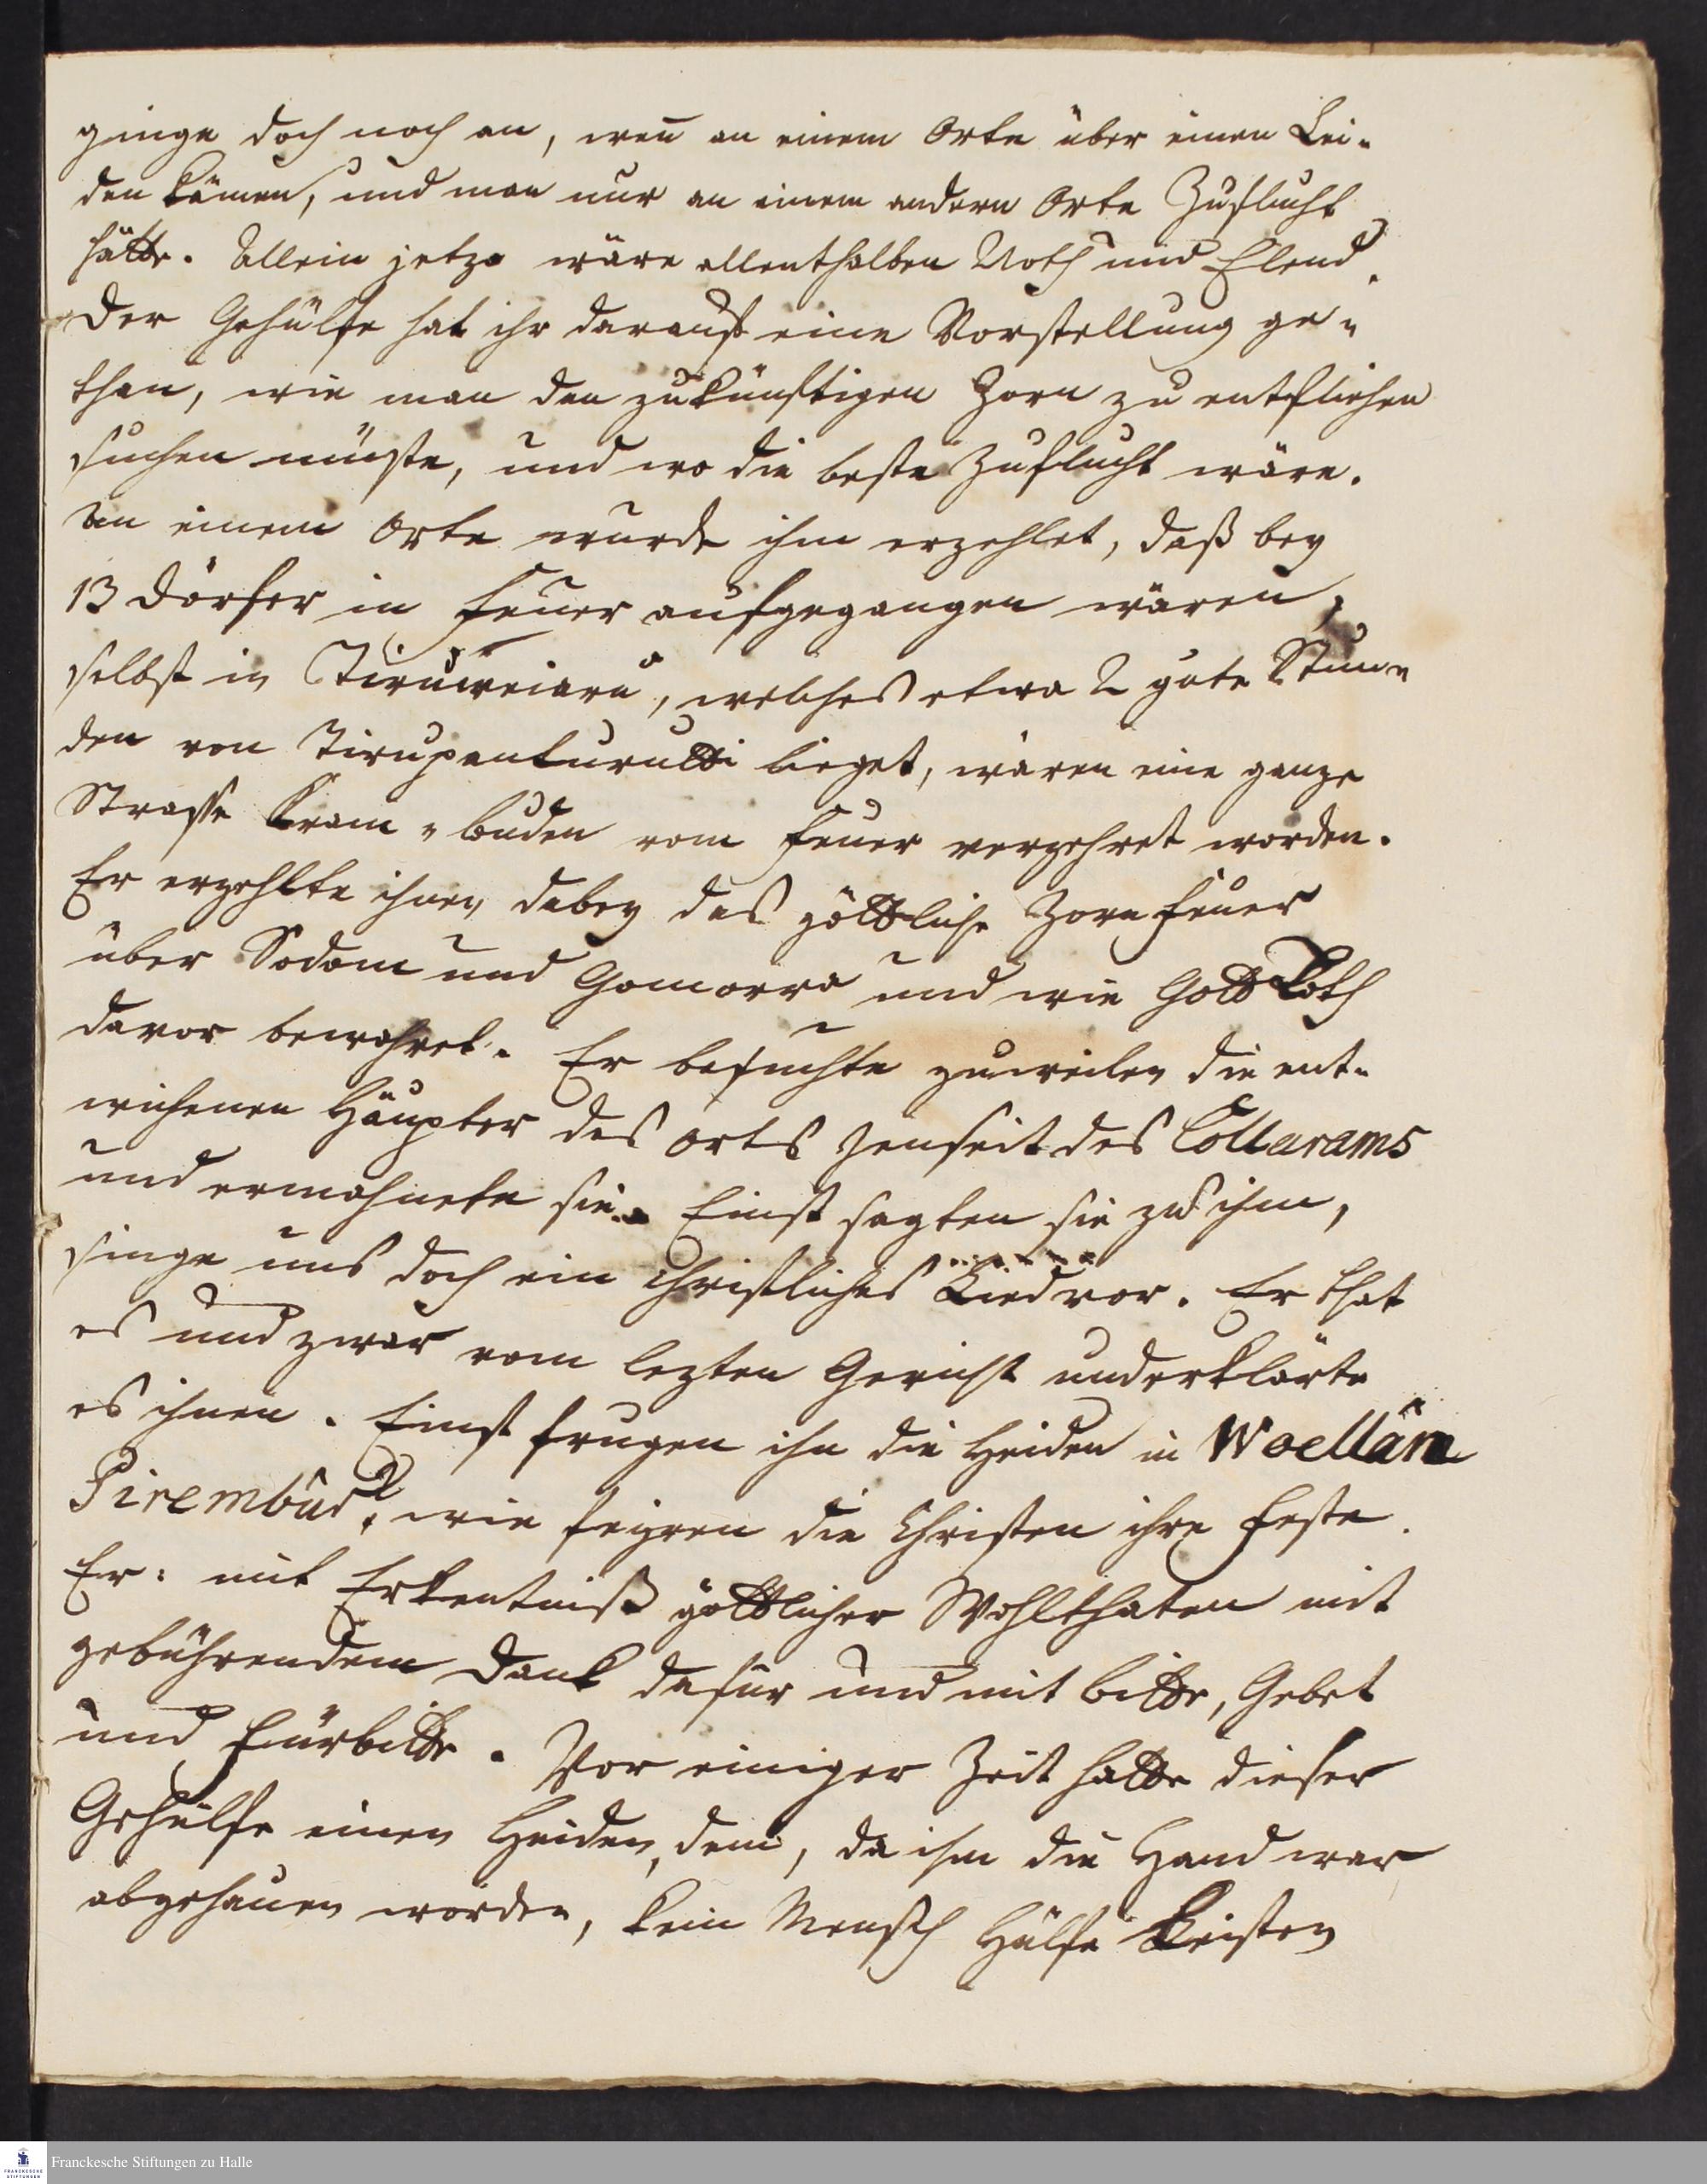 ginge doch noch an, weñ an einem Orte über einen Lei-
den kämen, und man nur an einem andern Orte Zuflucht
hätte. Allein jetzo wäre allenthalben Noth und Elend.
Der Gehülfe hat ihr darauf eine Vorstellung ge-
than, wie man den zukünftigen Zorn zu entfliehen
suchen müste, und wo die beste Zuflucht wäre.
An einem Orte wurde ihm erzehlet, daß bey
13 Dörfer in Feuer aufgegangen wären,
selbst in Tiruweiaru, welches etwa 2 gute Stun-
den von Tirupanturutti lieget, wären eine ganze
Strasse Kram-buden vom Feuer verzehret worden.
Er erzehlte ihnen dabey das göttliche Zorn Feuer
über Sodom und Gomorra und wie Gott Loth
davor bewahret. Er besuchte zuweilen die ent-
wichenen Häupter des Orts jenseit des Collarams
und ermahnete sie. Einst sagten sie zu ihm,
singe uns doch ein christliches Lied vor. Er that
es und zwar vom lezten Gericht und erklärte
es ihnen. Einst frugen ihn die Heiden in Woellám
Pirembúr, wie feyren die Christen ihre Feste.
Er: mit Erkentniß göttlicher Wohlthaten mit
gebührendem Dank dafür und mit Bitte, Gebet
und Fürbitte. Vor einiger Zeit hatte dieser
Gehülfe einen Heiden, dem, da ihm die Hand war
abgehauen worden, kein Mensch Hülfe Leisten
Franckesche Stiftungen zu Halle
FRANCKESCHE
STIFTUNGEN